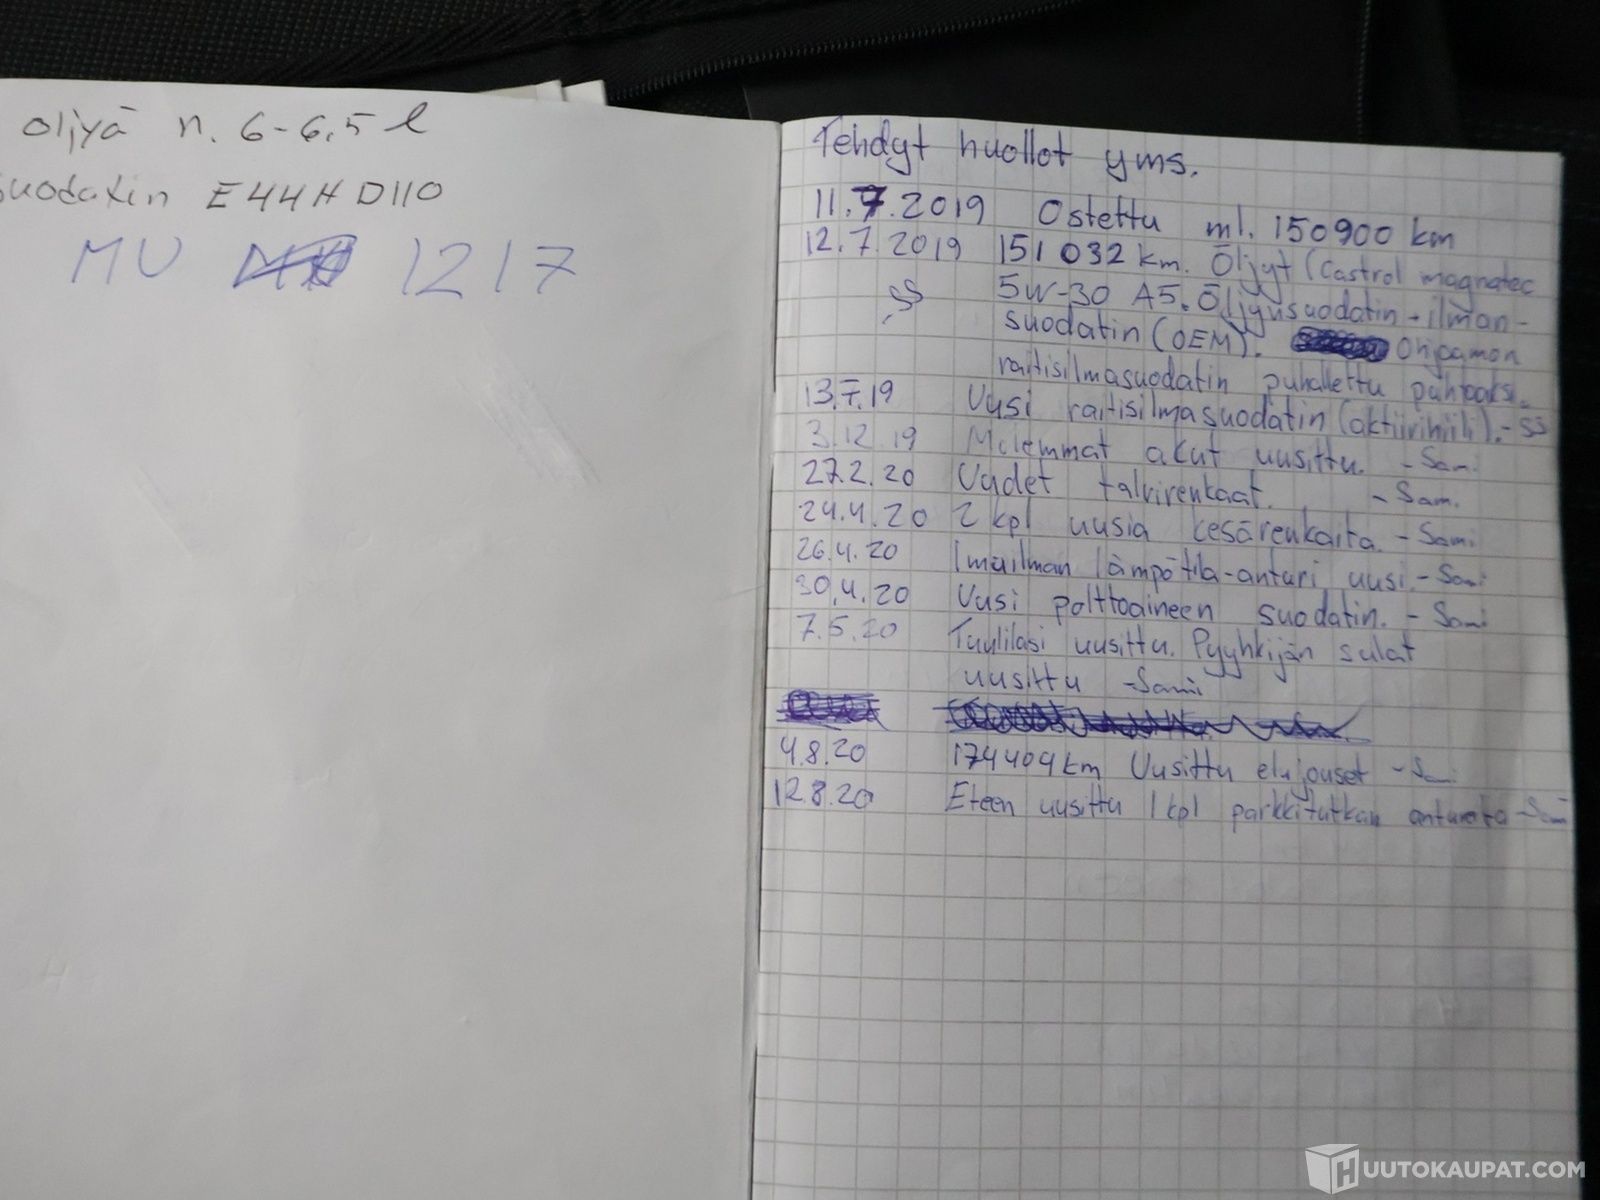 öljyä n. 6-6,5 l
suodatin E44H D110
MU 1217
Tehdyt huollot yms.
11.7.2019 Ostettu ml. 150900 km
12.7.2019 151032 km. Öljyt (Castrol magnatec
SS 5W-30 A5. Öljynsuodatin + ilman-
suodatin (OEM). Ohjaamon
raitisilmasuodatin puhallettu puhtaaksi.
13.7.19 Uusi raitisilmasuodatin (aktiivihiili). -SS
3.12.19 Molemmat akut uusittu. -Sami
27.2.20 Uudet talvirenkaat. -Sami
24.4.20 2 kpl uusia kesärenkaita. -Sami
26.4.20 Imuilman lämpötila-anturi uusi. -Sami
30.4.20 Uusi polttoaineen suodatin. -Sami
7.5.20 Tuulilasi uusittu. Pyyhkijän sulat
uusittu -Sami
4.8.20 174409km Uusittu etujouset -Sami
12.8.20 Eteen uusittu 1kpl parkkitutkan antureita -Sami
HUUTOKAUPAT.COM